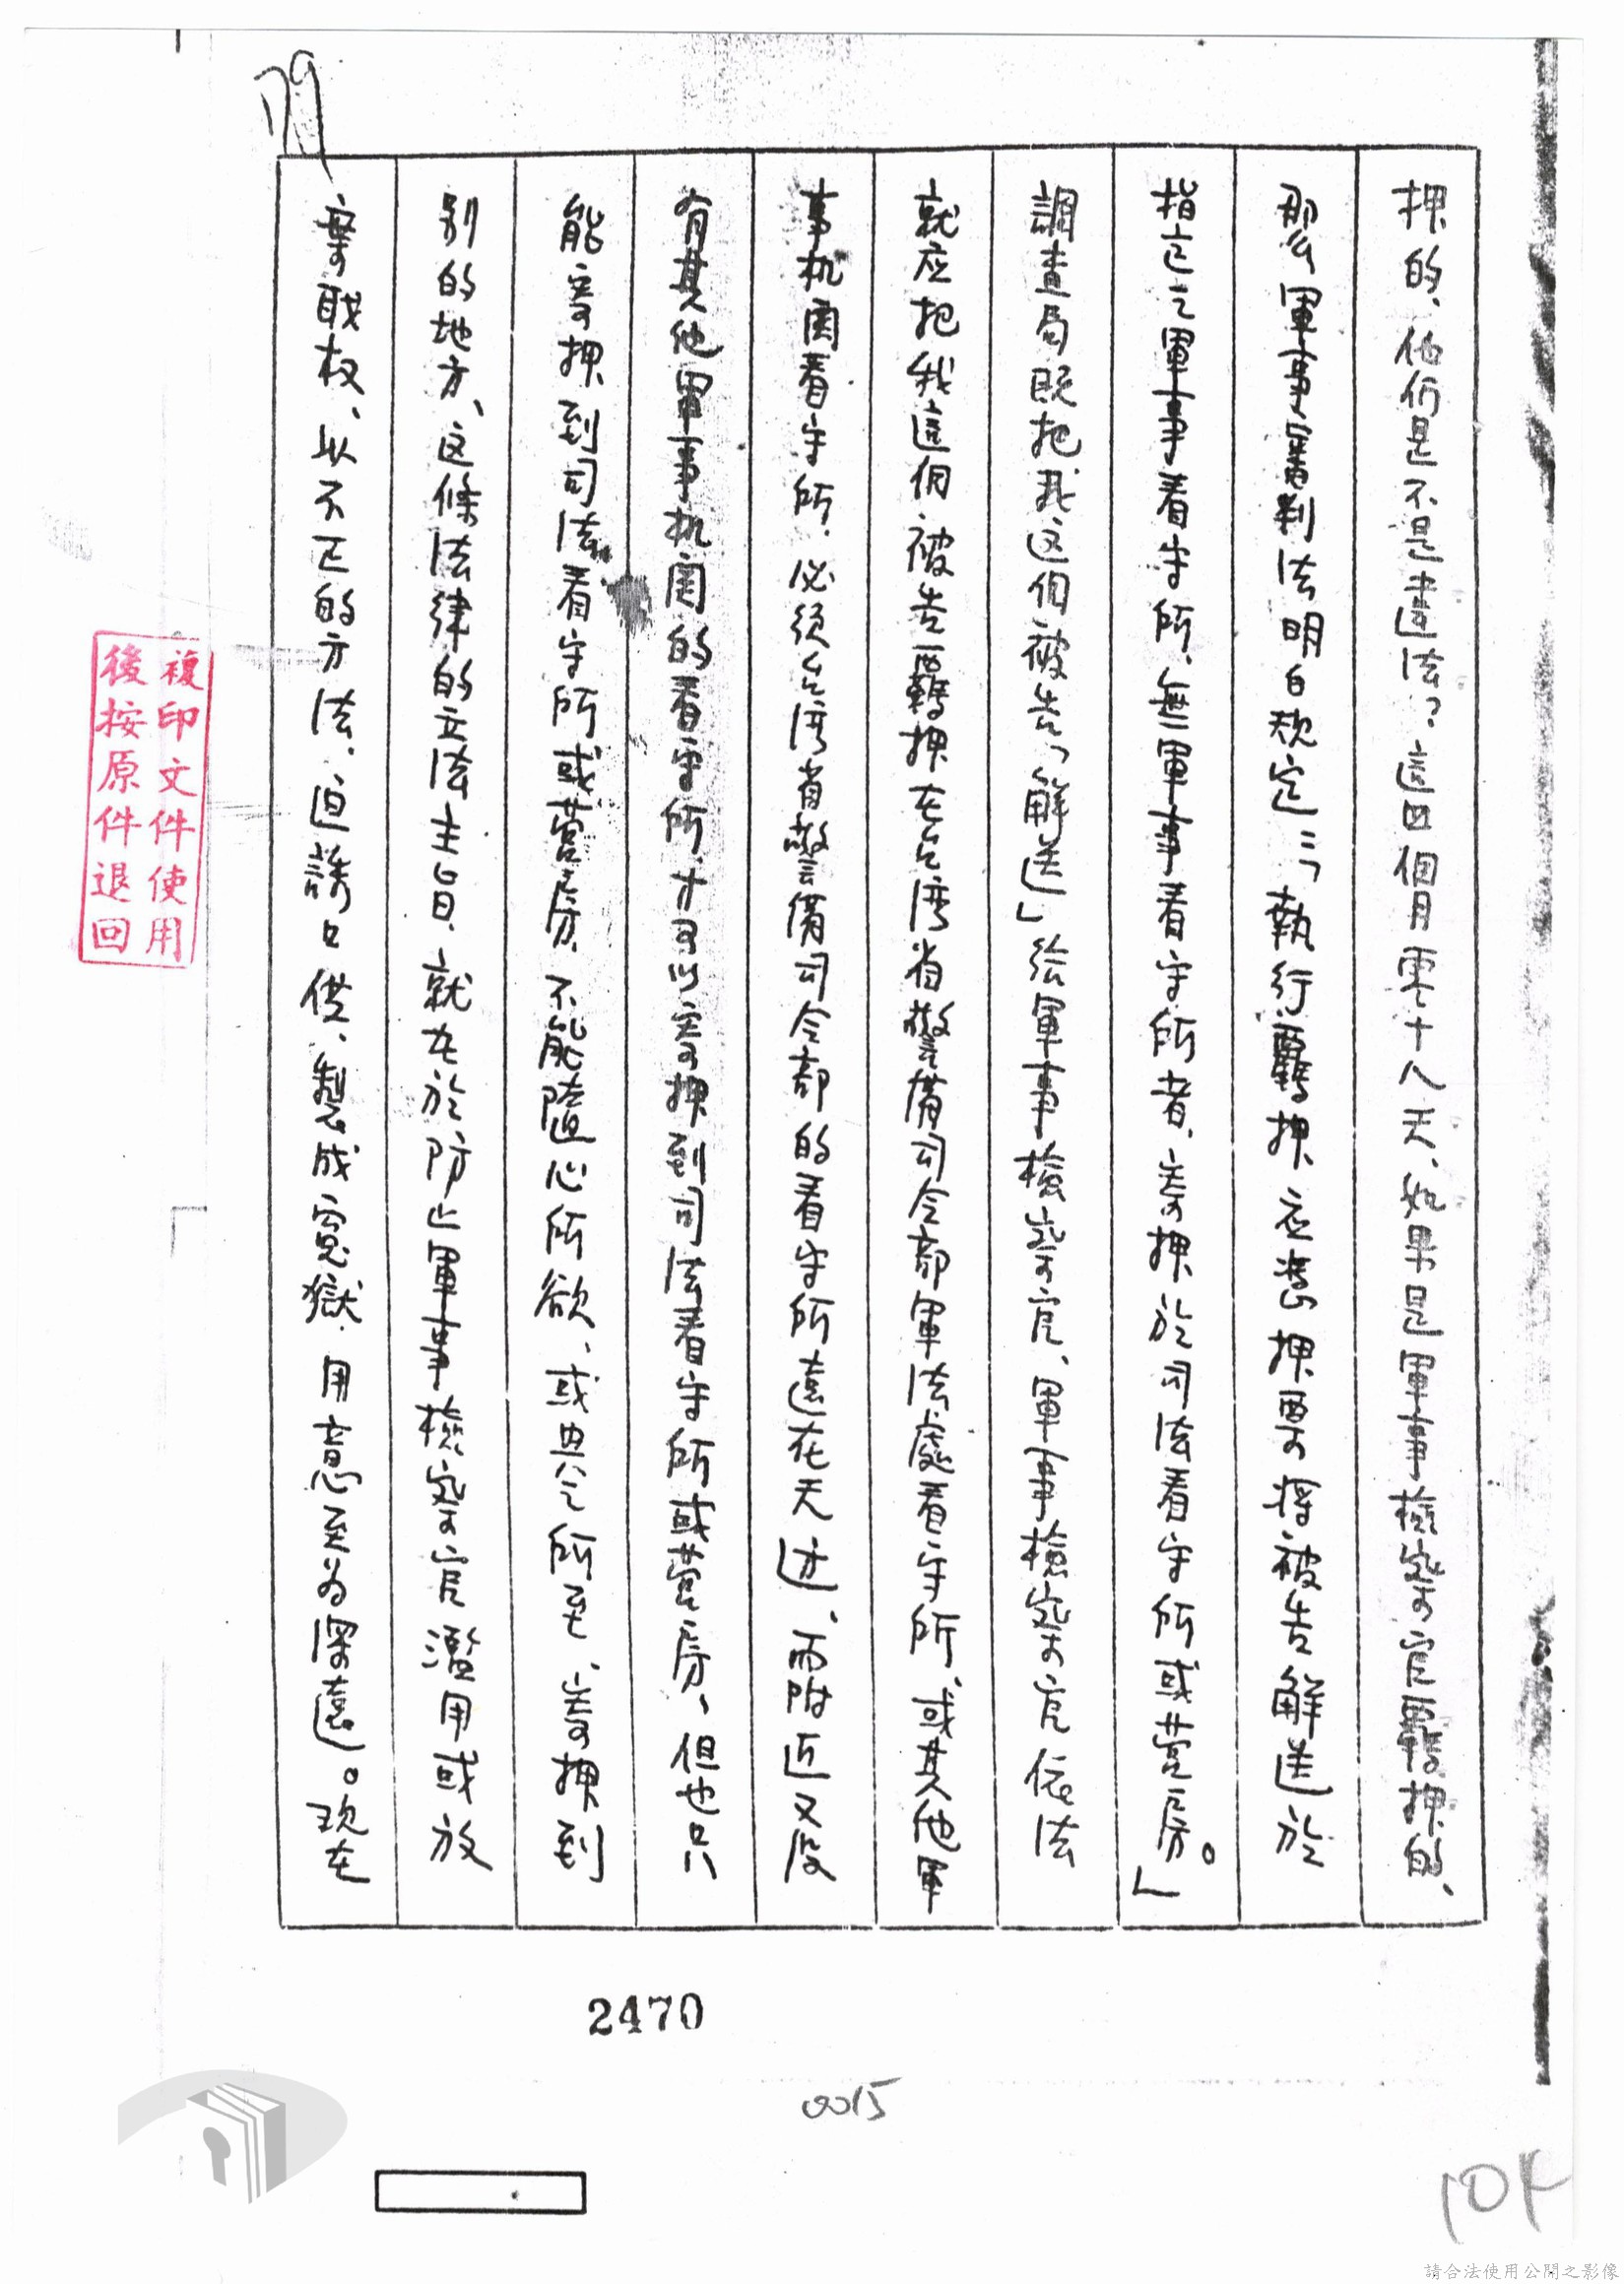 押的、他们是不是違法？這四個月零十八天、如果是軍事檢察官羈押的、
那么軍事審判法明白規定：「執行羈押、应憑押票將被告解送於
指定之軍事看守所、無軍事看守所者、寄押於司法看守所或营房。」
調查局既把我这個被告「解送」给軍事檢察官、軍事檢察官依法
就应把我這個被告羈押在台湾省警備司令部軍法處看守所、或其他軍
事机関看守所、必须台湾省警備司令部的看守所遠在天边、而附近又没
有其他軍事机関的看守所、才可以寄押到司法看守所或营房、但也只
能寄押到司法看守所或营房、不能隨心所欲、或興令所至、寄押到
别的地方、这條法律的立法主旨、就在於防止軍事檢察官濫用或放
棄职权、以不正的方法、迫誘口供、製成寃獄、用意至为深遠。现在
複印文件使用
後按原件退回
2470
0015
104
請合法使用公開之影像